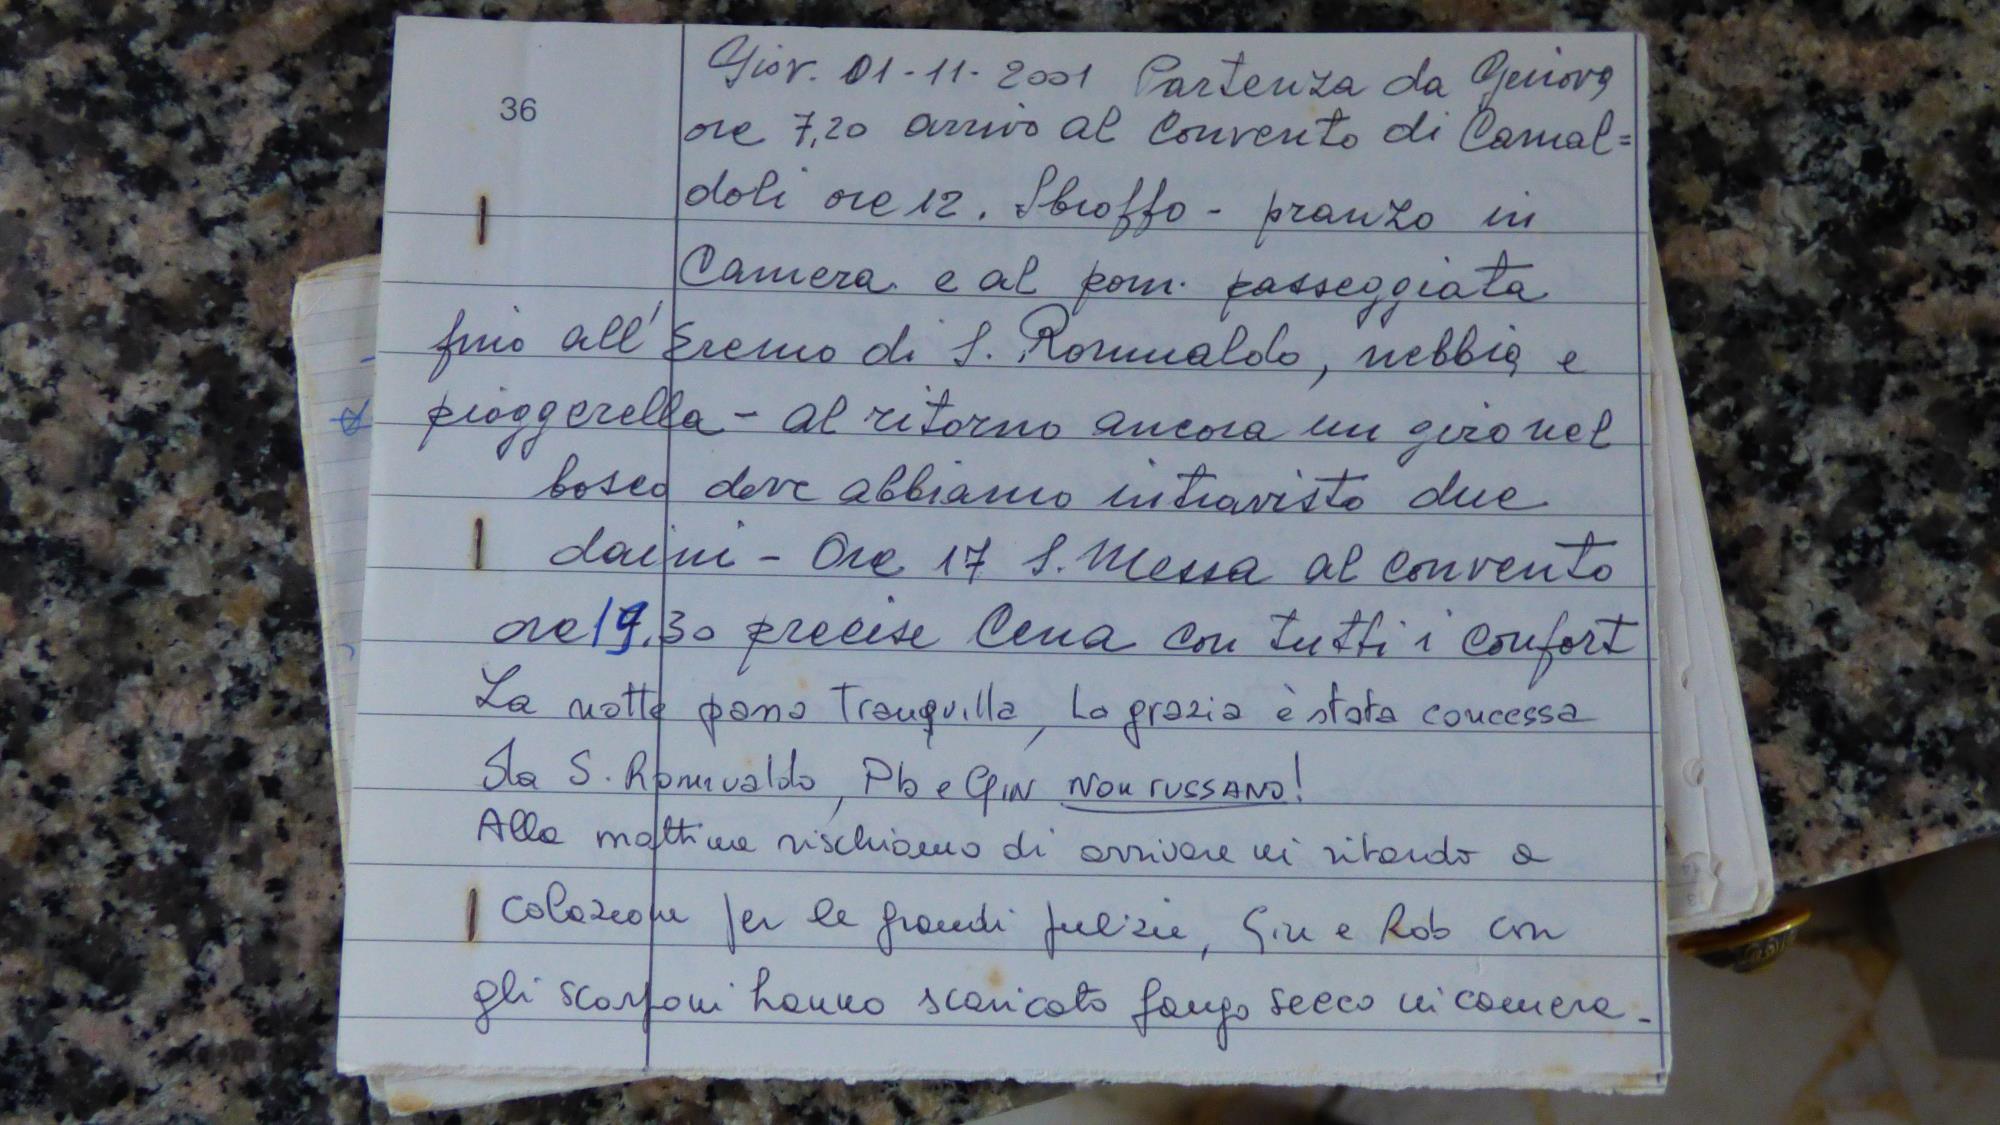 36
Giov. 01-11-2001 Partenza da Genova
ore 7,20 arrivo al Convento di Camal=
doli ore 12. Sbroffo - pranzo in
Camera e al pom. passeggiata
fino all'Eremo di S. Romualdo, nebbia e
pioggerella - al ritorno ancora un giro nel
bosco dove abbiamo intravisto due
daini - Ore 17 S. Messa al convento
ore 19.30 precise Cena con tutti i confort
La notte passa Tranquilla, La grazia è stata concessa
da S. Romualdo, Pb e GIN NON RUSSANO!
Alla mattina rischiamo di arrivare in ritardo a
colazione per le grandi pulizie, Gin e Rob con
gli scarponi hanno scaricato fango secco in camera -